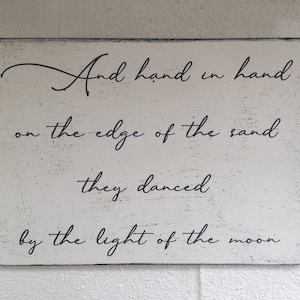 And hand in hand
on the edge of the sand
they danced
by the light of the moon